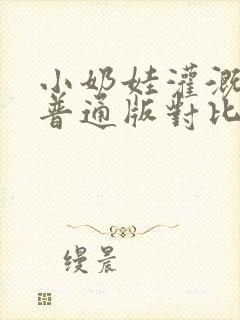 小奶娃灌溉
普通版對比
缦晨